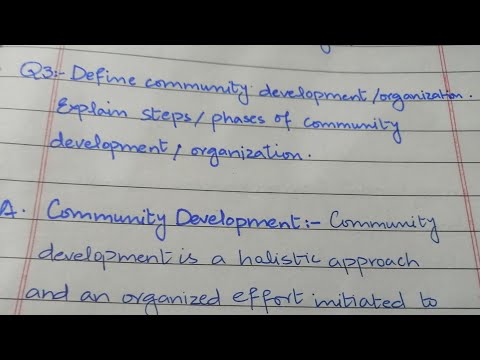 Q3:- Define community development/organization.
Explain steps/phases of community
development/organization.
A. Community Development:- Community
development is a holistic approach
and an organized effort initiated to